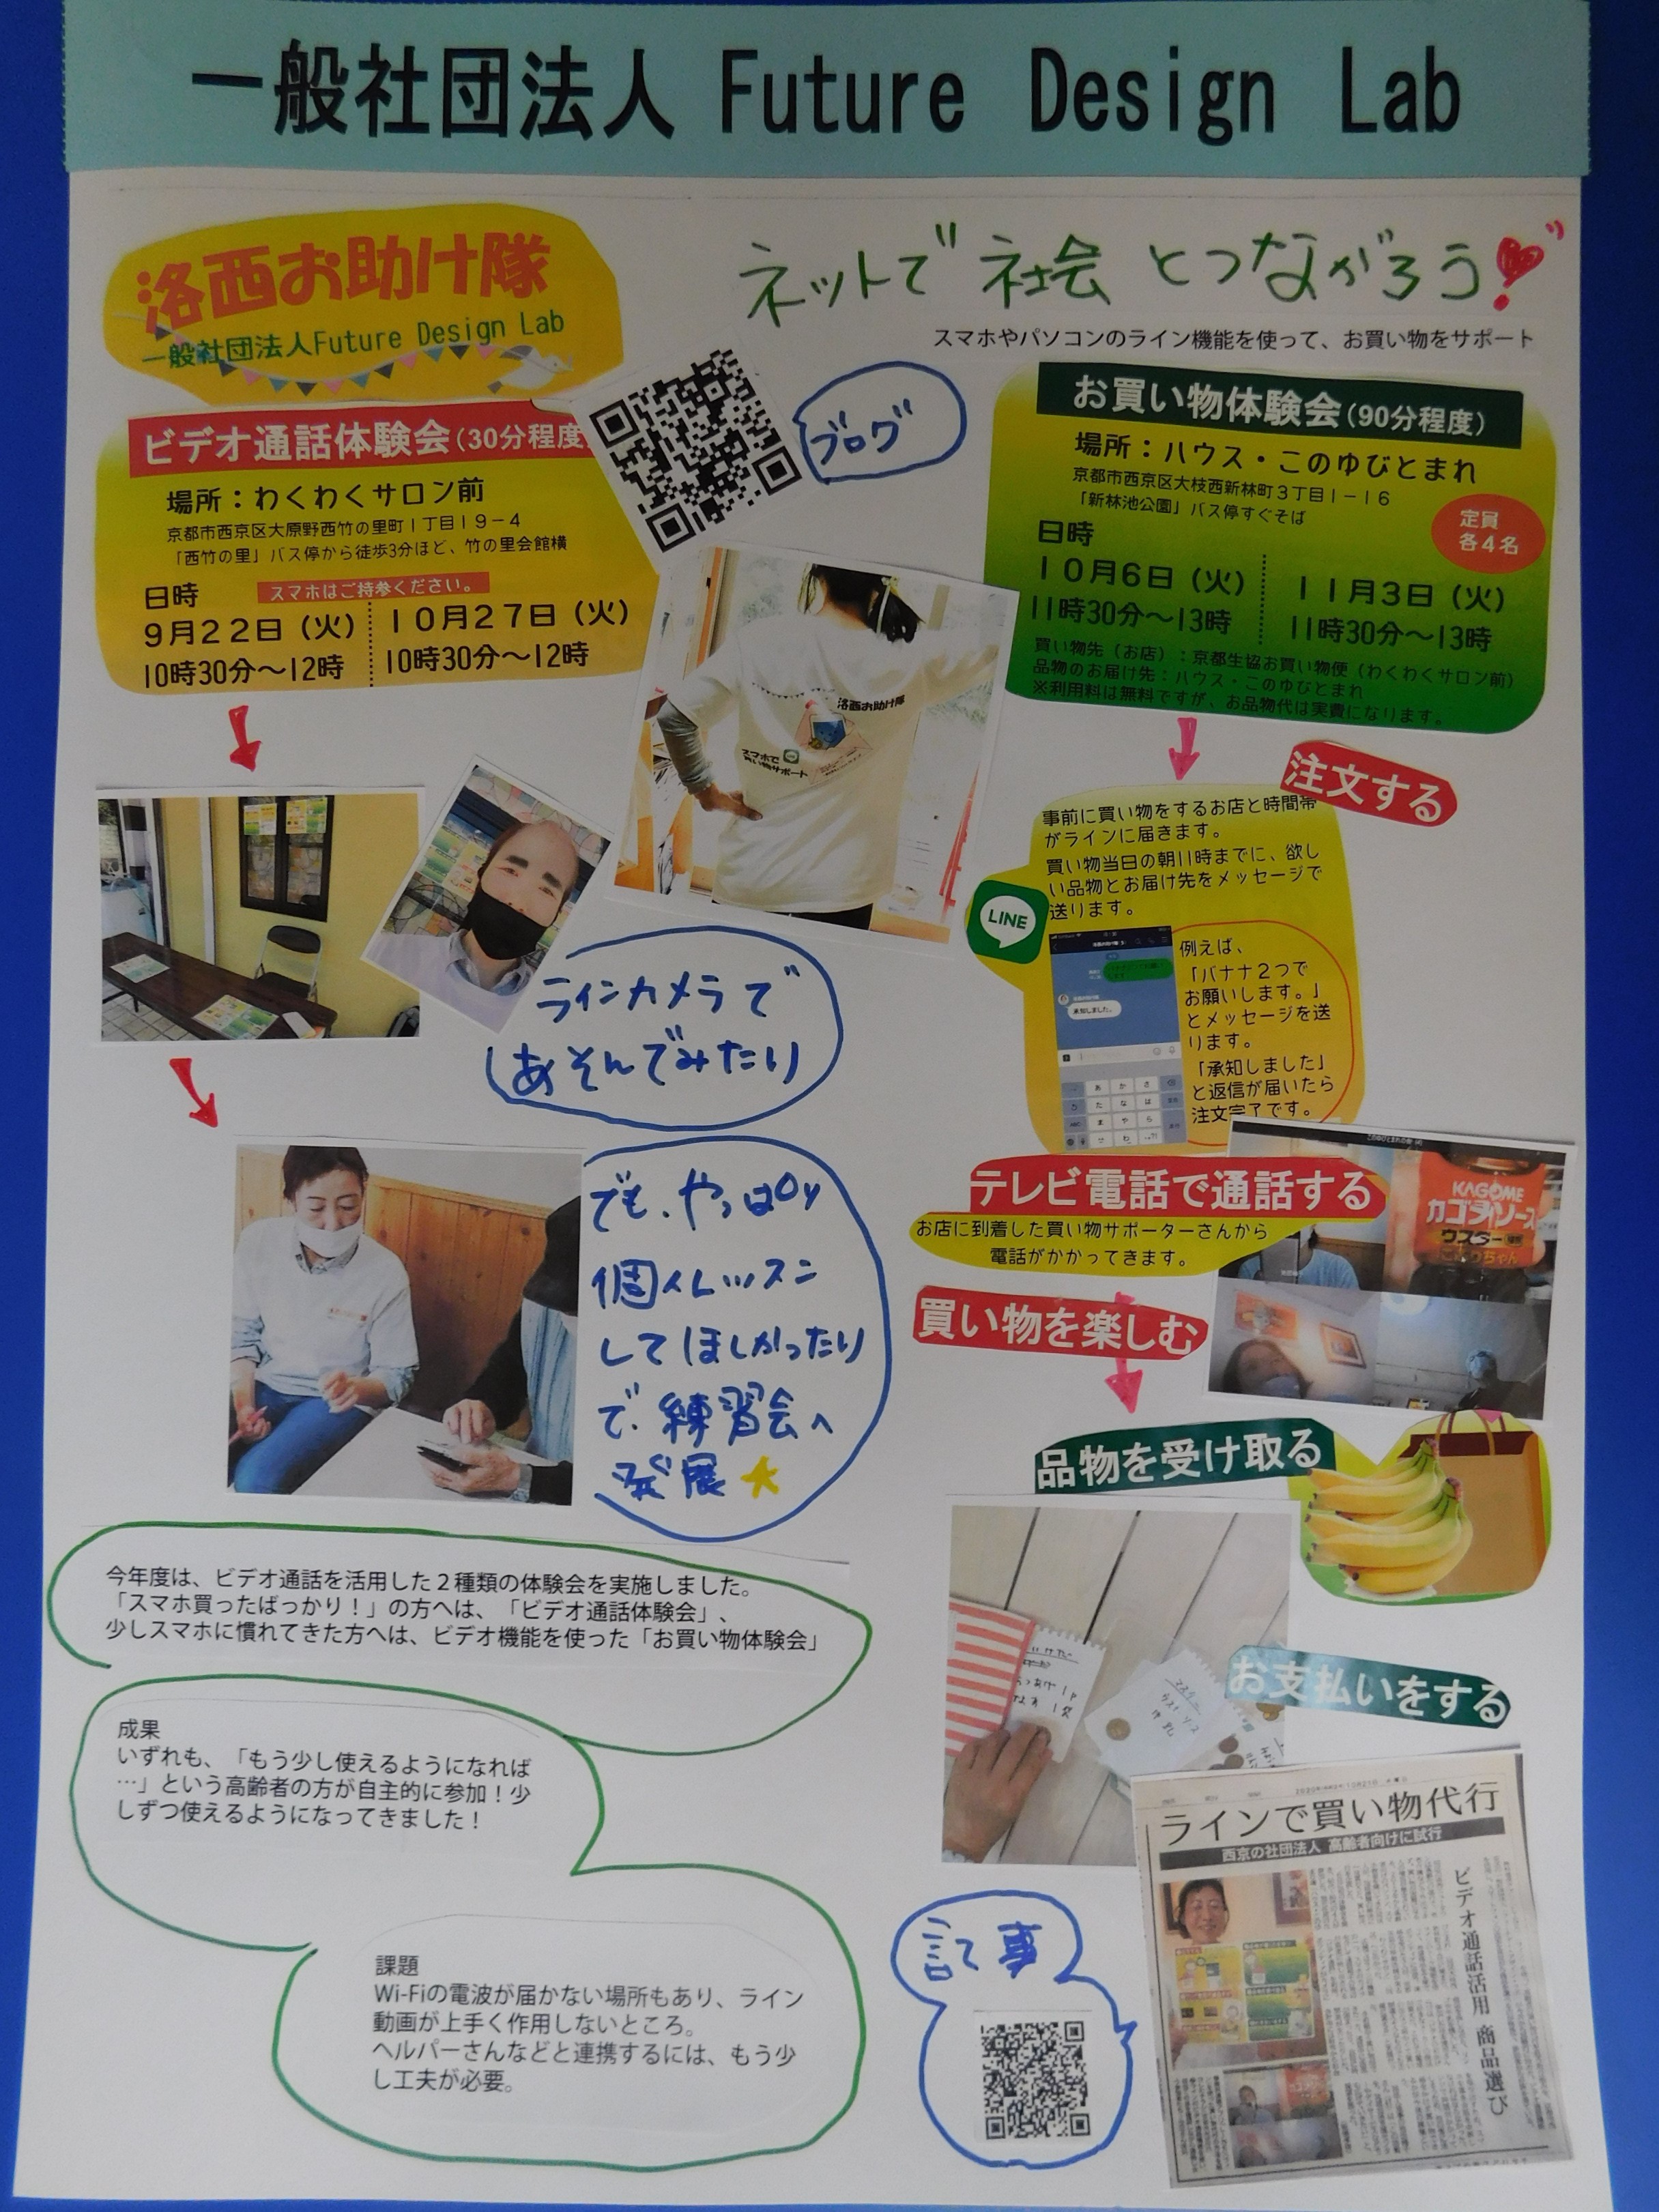 一般社団法人 Future Design Lab
洛西お助け隊
一般社団法人Future Design Lab
ネットで社会とつながろう!
スマホやパソコンのライン機能を使って、お買い物をサポート
ブログ
ビデオ通話体験会(30分程度
場所：わくわくサロン前
京都市西京区大原野西竹の里町1丁目19-4
「西竹の里」バス停から徒歩3分ほど、竹の里会館横
日時
スマホはご持参ください。
9月22日（火）
10時30分～12時
10月27日（火）
10時30分～12時
お買い物体験会(90分程度)
場所：ハウス・このゆびとまれ
京都市西京区大枝西新林町3丁目1-16
「新林池公園」バス停すぐそば
定員
各4名
日時
10月6日（火）
11時30分～13時
11月3日（火）
11時30分～13時
買い物先（お店）：京都生協お買い物便（わくわくサロン前）
品物のお届け先：ハウス・このゆびとまれ
※利用料は無料ですが、お品物代は実費になります。
洛西お助け隊
スマホで
買い物サポート
ラインカメラで
あそんでみたり
でも、やっぱり
個人レッスン
してほしかったり
で、練習会へ
発展
注文する
事前に買い物をするお店と時間帯
がラインに届きます。
買い物当日の朝11時までに、欲し
い品物とお届け先をメッセージで
送ります。
LINE
承知しました。
例えば、
「バナナ2つで
お願いします。」
とメッセージを送
ります。
「承知しました」
と返信が届いたら
注文完了です。
テレビ電話で通話する
お店に到着した買い物サポーターさんから
電話がかかってきます。
KAGOME
カゴメソース
ウスター
買い物を楽しむ
品物を受け取る
お支払いをする
今年度は、ビデオ通話を活用した2種類の体験会を実施しました。
「スマホ買ったばっかり！」の方へは、「ビデオ通話体験会」、
少しスマホに慣れてきた方へは、ビデオ機能を使った「お買い物体験会」
成果
いずれも、「もう少し使えるようになれば
…」という高齢者の方が自主的に参加！少
しずつ使えるようになってきました！
課題
Wi-Fiの電波が届かない場所もあり、ライン
動画が上手く作用しないところ。
ヘルパーさんなどと連携するには、もう少
し工夫が必要。
記事
ラインで買い物代行
西京の社団法人 高齢者向けに試行
ビデオ通話活用 商品選び